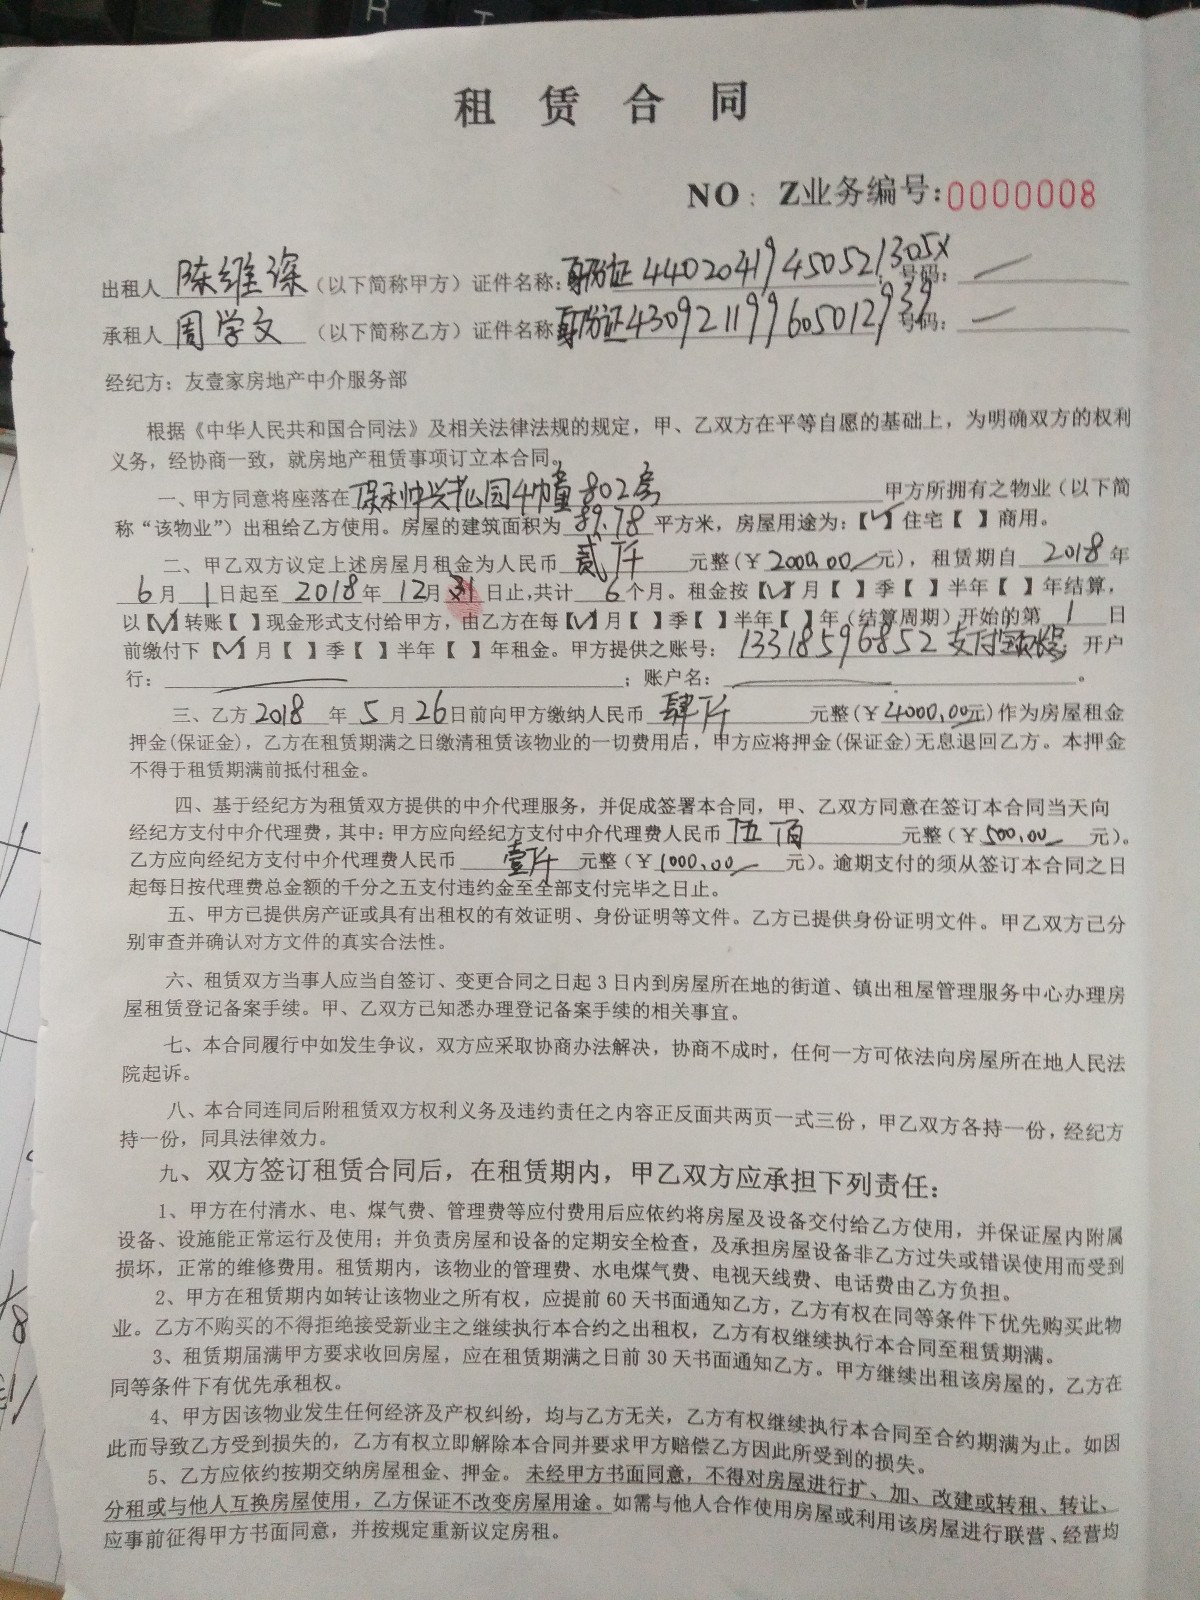 租 赁 合 同
NO：Z业务编号:0000008
出租人 陈维深（以下简称甲方）证件名称:身份证 44020419450521305X 号码:
承租人 周学文（以下简称乙方）证件名称 身份证430921199605012939 号码:
经纪方：友壹家房地产中介服务部
根据《中华人民共和国合同法》及相关法律法规的规定，甲、乙双方在平等自愿的基础上，为明确双方的权利
义务，经协商一致，就房地产租赁事项订立本合同。
一、甲方同意将座落在 保利中兴花园4幢 802房 甲方所拥有之物业（以下简
称“该物业”）出租给乙方使用。房屋的建筑面积为 89.78 平方米，房屋用途为:【✓】住宅【 】商用。
二、甲乙双方议定上述房屋月租金为人民币 贰仟 元整(￥2000.00元)，租赁期自 2018 年
6月 1日起至 2018年 12月31日止,共计 6个月。租金按【✓】月【 】季【 】半年【 】年结算，
以【✓】转账【 】现金形式支付给甲方，由乙方在每【✓】月【 】季【 】半年【 】年（结算周期）开始的第 1 日
前缴付下【✓】月【 】季【 】半年【 】年租金。甲方提供之账号：13318596852 支付宝 开户
行： ；账户名： 。
三、乙方 2018 年 5月26日前向甲方缴纳人民币 肆仟 元整(￥4000.00元)作为房屋租金
押金(保证金)，乙方在租赁期满之日缴清租赁该物业的一切费用后，甲方应将押金(保证金)无息退回乙方。本押金
不得于租赁期满前抵付租金。
四、基于经纪方为租赁双方提供的中介代理服务，并促成签署本合同，甲、乙双方同意在签订本合同当天向
经纪方支付中介代理费，其中：甲方应向经纪方支付中介代理费人民币 伍佰 元整（￥500.00 元）。
乙方应向经纪方支付中介代理费人民币 壹仟 元整（￥1000.00 元）。逾期支付的须从签订本合同之日
起每日按代理费总金额的千分之五支付违约金至全部支付完毕之日止。
五、甲方已提供房产证或具有出租权的有效证明、身份证明等文件。乙方已提供身份证明文件。甲乙双方已分
别审查并确认对方文件的真实合法性。
六、租赁双方当事人应当自签订、变更合同之日起 3 日内到房屋所在地的街道、镇出租屋管理服务中心办理房
屋租赁登记备案手续。甲、乙双方已知悉办理登记备案手续的相关事宜。
七、本合同履行中如发生争议，双方应采取协商办法解决，协商不成时，任何一方可依法向房屋所在地人民法
院起诉。
八、本合同连同后附租赁双方权利义务及违约责任之内容正反面共两页一式三份，甲乙双方各持一份，经纪方
持一份，同具法律效力。
九、双方签订租赁合同后，在租赁期内，甲乙双方应承担下列责任：
1、甲方在付清水、电、煤气费、管理费等应付费用后应依约将房屋及设备交付给乙方使用，并保证屋内附属
设备、设施能正常运行及使用；并负责房屋和设备的定期安全检查，及承担房屋设备非乙方过失或错误使用而受到
损坏，正常的维修费用。租赁期内，该物业的管理费、水电煤气费、电视天线费、电话费由乙方负担。
2、甲方在租赁期内如转让该物业之所有权，应提前 60 天书面通知乙方，乙方有权在同等条件下优先购买此物
业。乙方不购买的不得拒绝接受新业主之继续执行本合约之出租权，乙方有权继续执行本合同至租赁期满。
3、租赁期届满甲方要求收回房屋，应在租赁期满之日前 30 天书面通知乙方。甲方继续出租该房屋的，乙方在
同等条件下有优先承租权。
4、甲方因该物业发生任何经济及产权纠纷，均与乙方无关，乙方有权继续执行本合同至合约期满为止。如因
此而导致乙方受到损失的，乙方有权立即解除本合同并要求甲方赔偿乙方因此所受到的损失。
5、乙方应依约按期交纳房屋租金、押金。未经甲方书面同意，不得对房屋进行扩、加、改建或转租、转让、
分租或与他人互换房屋使用，乙方保证不改变房屋用途。如需与他人合作使用房屋或利用该房屋进行联营、经营均
应事前征得甲方书面同意，并按规定重新议定房租。